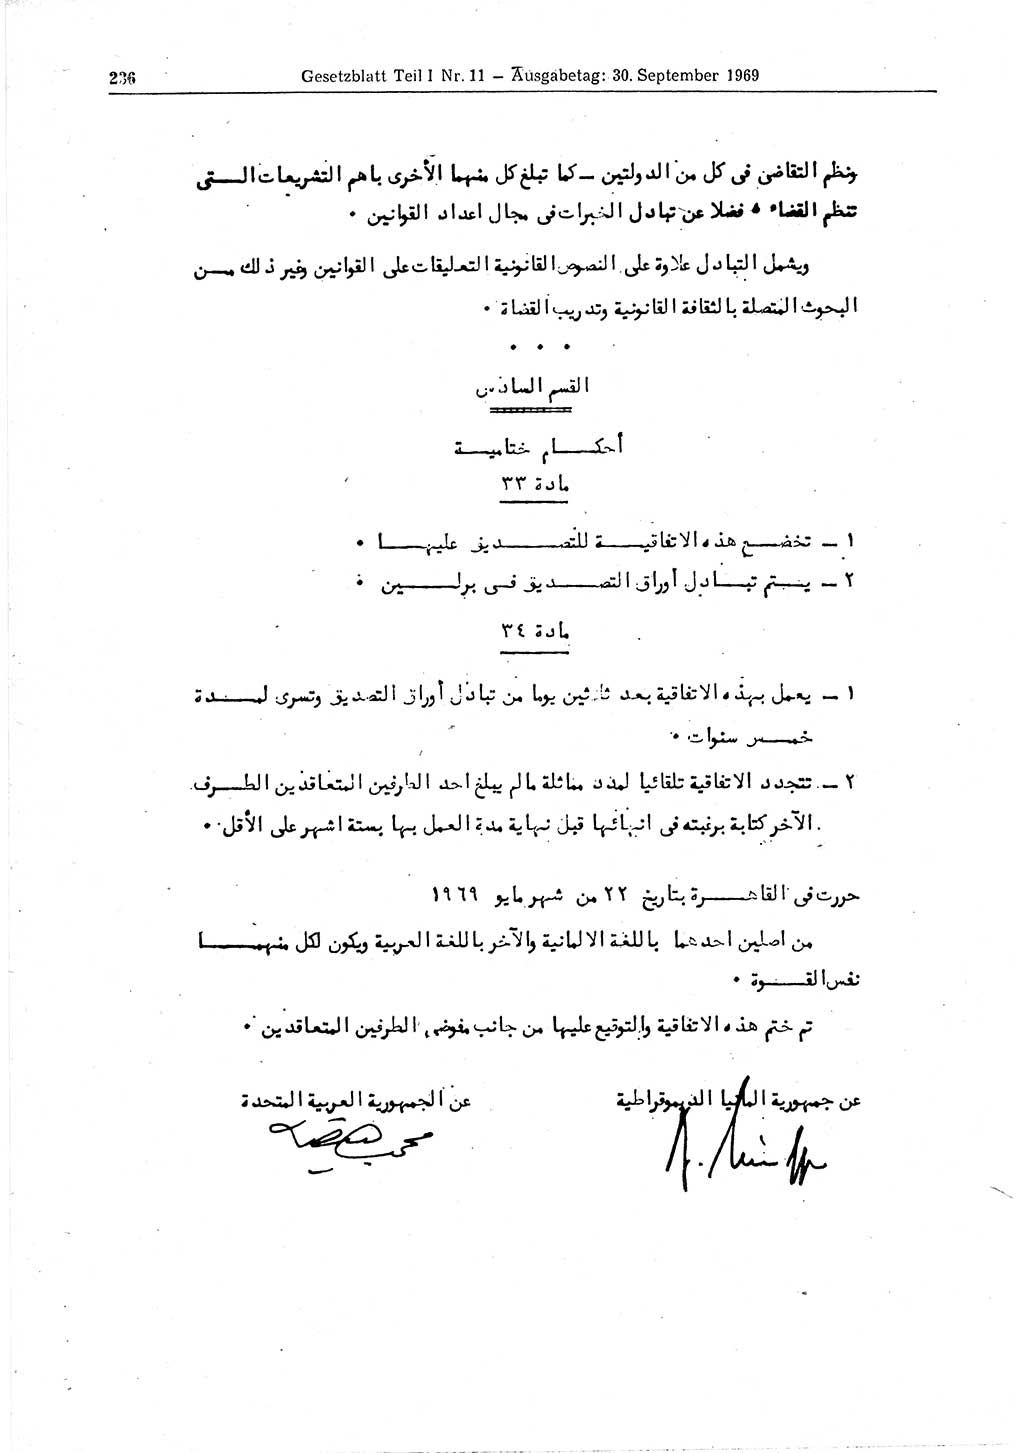 236
Gesetzblatt Teil I Nr. 11 — Ausgabetag: 30. September 1969
ونظم التقاضى فى كل من الدولتين ــ كما تبلغ كل منهما الأخرى باهم التشريعات الــتى
تنظم القضاء ، فضلا عن تبادل الخبرات فى مجال اعداد القوانين ٠
ويشمل التبادل علاوة على النصوص القانونية التعليقات على القوانين وغير ذلك مــن
البحوث المتصلة بالثقافة القانونية وتدريب القضاة ٠
٠ ٠ ٠
القسم السادس
أحكــام ختاميــة
مادة ٣٣
١ ــ تخضــع هذه الاتفاقيــة للتصــديق عليهــا ٠
٢ ــ يتــم تبــادل أوراق التصــديق فــى برلــين ٠
مادة ٣٤
١ ــ يعمل بهذه الاتفاقية بعد ثلاثين يوما من تبادل أوراق التصديق وتسرى لمــدة
خمــس سنوات ٠
٢ ــ تتجدد الاتفاقية تلقائيا لمدد مماثلة مالم يبلغ احد الطرفين المتعاقدين الطــرف
الآخر كتابة برغبته فى انهائها قبل نهاية مدة العمل بها بستة اشهر على الأقل ٠
حررت فى القاهــرة بتاريخ ٢٢ من شهر مايو ١٩٦٩
من اصلين احدهما باللغة الالمانية والآخر باللغة العربية ويكون لكل منهمــا
نفس القــوة ٠
تم ختم هذه الاتفاقية والتوقيع عليها من جانب مفوضى الطرفين المتعاقدين ٠
عن جمهورية المانيا الديموقراطية
عن الجمهورية العربية المتحدة